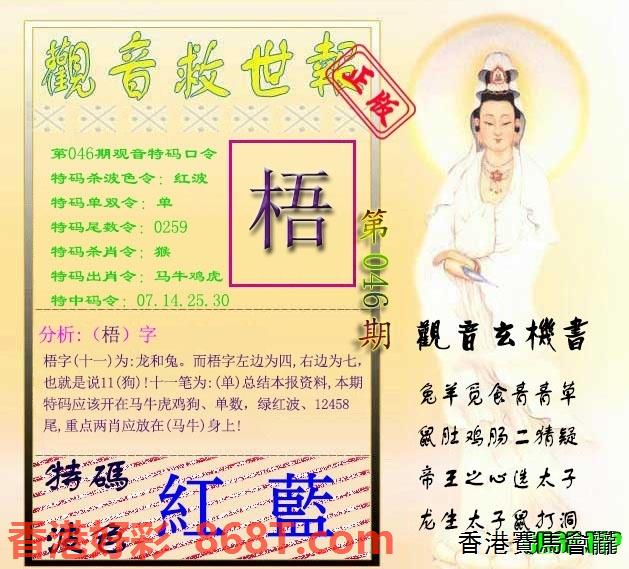 觀音救世報
正版
第046期观音特码口令
特码杀波色令: 红波
特码单双令: 单
特码尾数令: 0259
特码杀肖令: 猴
特码出肖令: 马牛鸡虎
特中码令: 07.14.25.30
梧
第046期
分析:（梧）字
梧字(十一)为:龙和兔。而梧字左边为四,右边为七,
也就是说11(狗)!十一笔为:(单)总结本报资料,本期
特码应该开在马牛虎鸡狗、单数，绿红波、12458
尾,重点两肖应放在(马牛)身上!
特碼
波色
紅 藍
觀音玄機書
兔羊觅食青青草
鼠肚鸡肠二猜疑
帝王之心选太子
龙生太子鼠打洞
香港好彩 868T.com
香港賽馬會